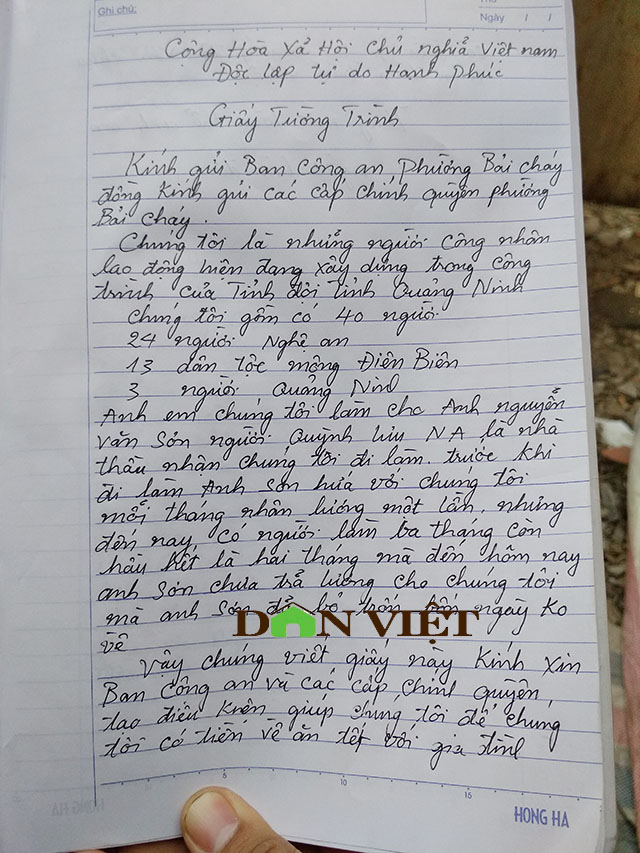 Ghi chú:
Ngày / /
Cộng Hòa Xả Hội Chủ nghiả Việt nam
Độc lập tự do Hạnh phúc
Giấy Tường Trình
Kính gửi Ban Công an, Phường Bải cháy
đồng Kính gửi các cấp chính quyền phường
Bải cháy.
Chúng tôi là những người công nhân
lao động hiện đang xây dựng trong công
trình của Tỉnh đội Tỉnh Quảng Ninh
chúng tôi gồm có 40 người
24 người Nghệ an
13 dân tộc mông Điện Biên
3 người Quảng Ninh
Anh em chúng tôi làm cho Anh nguyễn
văn Sơn người Quỳnh lưu NA là nhà
thầu nhận chúng tôi đi làm. trước khi
đi làm Anh Sơn hứa với chúng tôi
mỗi tháng nhận lương một lần, nhưng
đến nay có người làm ba tháng còn
hầu hết là hai tháng mà đến hôm nay
anh Sơn chưa trả lương cho chúng tôi
mà anh Sơn đả bỏ trốn ngày Ko
về
DÂN VIỆT
Vậy chúng viết giấy này Kính xin
Ban Công an và các cấp chính quyền,
tạo điều kiện giúp chúng tôi để chúng
tôi có tiền về ăn tết với gia đình
5 10 15
HONG HA